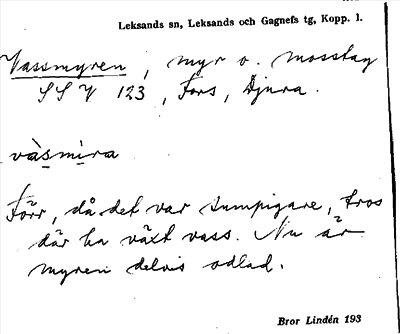 Leksands sn, Leksands och Gagnefs tg, Kopp. l.
Vassmyren, myr o. mosstag
SSV 123, Fors, Djura.
vàsmira
Förr, då det var sumpigare, tros
där ha växt vass. Nu är
myren delvis odlad.
Bror Lindén 193